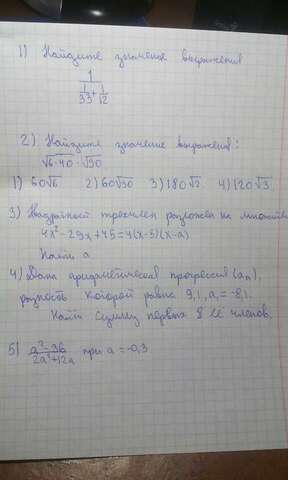 1) Найдите значение выражения
1
1/33 + 1/12
2) Найдите значение выражения:
√6·40 · √90
1) 60√6 2) 60√30 3) 180√2 4) 120√3
3) Квадратный трехчлен разложен на множит
4x² - 29x + 45 = 4(x-5)(x-a)
Найти a
4) Дана арифметическая прогрессия (aₙ),
разность которой равна 9,1, a₁ = -8,1.
Найти сумму первых 8 её членов.
5) a² - 36 / 2a² + 12a при a = -0,3